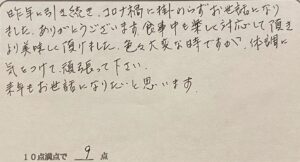 昨年に引き続き、コロナ禍に拘わらずお世話になり
ました。ありがとうございます。食事中も楽しく対応して頂き
より美味しく頂けました。色々大変な時ですが、体調に
気をつけて、頑張って下さい。
来年もお世話になりたいと思います。
10点満点で 9 点